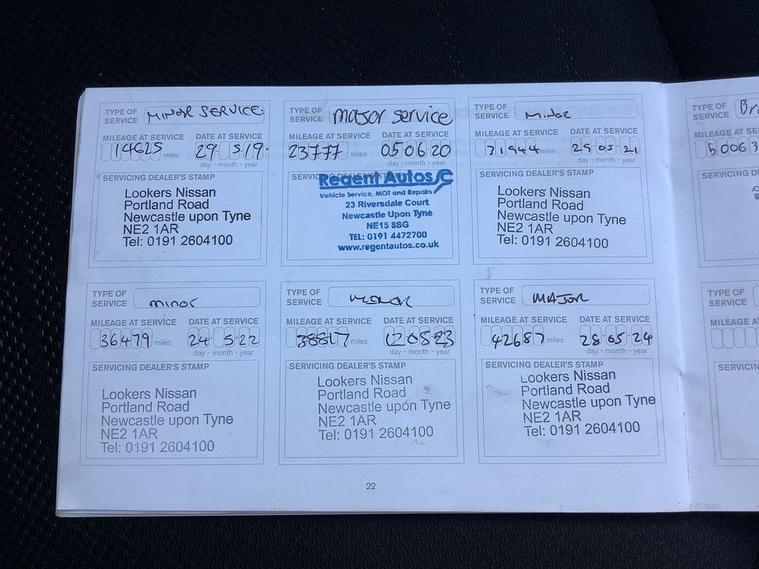 TYPE OF SERVICE MINOR SERVICE
MILEAGE AT SERVICE DATE AT SERVICE
14625 miles 29 5 19
day - month - year
SERVICING DEALER'S STAMP
Lookers Nissan
Portland Road
Newcastle upon Tyne
NE2 1AR
Tel: 0191 2604100
TYPE OF SERVICE major service
MILEAGE AT SERVICE DATE AT SERVICE
23777 miles 05 06 20
day - month - year
Regent Autos
Vehicle Service, MOT and Repairs
23 Riversdale Court
Newcastle Upon Tyne
NE15 8SG
TEL: 0191 4472700
www.regentautos.co.uk
TYPE OF SERVICE Minor
MILEAGE AT SERVICE DATE AT SERVICE
31944 miles 05 21
day - month - year
SERVICING DEALER'S STAMP
Lookers Nissan
Portland Road
Newcastle upon Tyne
NE2 1AR
Tel: 0191 2604100
TYPE OF SERVICE
MILEAGE AT SE
TYPE OF SERVICE minor
MILEAGE AT SERVICE DATE AT SERVICE
36479 miles 24 5 22
day - month - year
SERVICING DEALER'S STAMP
Lookers Nissan
Portland Road
Newcastle upon Tyne
NE2 1AR
Tel: 0191 2604100
TYPE OF SERVICE
MILEAGE AT SERVICE DATE AT SERVICE
38817 miles 12 05 23
day - month - year
SERVICING DEALER'S STAMP
Lookers Nissan
Portland Road
Newcastle upon Tyne
NE2 1AR
Tel: 0191 2604100
TYPE OF SERVICE MAJOR
MILEAGE AT SERVICE DATE AT SERVICE
42687 miles 28 05 24
day - month - year
SERVICING DEALER'S STAMP
Lookers Nissan
Portland Road
Newcastle upon Tyne
NE2 1AR
Tel: 0191 2604100
TYPE OF SERVICE
MILEAGE A
SERVICIN
22